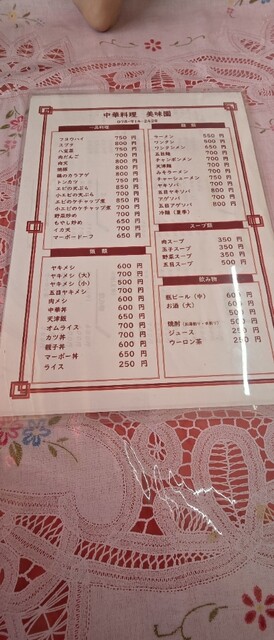 中華料理 美味園
一品料理
フヨウハイ 750 円
スブタ 800 円
八宝菜 750 円
肉だんご 700 円
肉天 700 円
焼豚 800 円
鶏のカラアゲ 800 円
トンカツ 750 円
エビの天ぷら 850 円
小エビの天ぷら 700 円
エビのケチャップ煮 850 円
小エビのケチャップ煮 700 円
野菜炒め 700 円
もやし炒め 650 円
イカ天 700 円
マーボードーフ 650 円
飯類
ヤキメシ 600 円
ヤキメシ（大） 700 円
ヤキメシ（小） 500 円
五目ヤキメシ 700 円
肉メシ 700 円
中華丼 600 円
天津飯 650 円
オムライス 700 円
カツ丼 700 円
親子丼 600 円
マーボー丼 650 円
ライス 250 円
麺類
ラーメン 550 円
ワンタン 600 円
ワンタンメン 650 円
五目麺 700 円
チャンポンメン 700 円
天津麺 700 円
ムキラーメン 700 円
チャーシューメン 750 円
ヤキソバ 700 円
五目ヤキソバ 800 円
アゲソバ 700 円
五目アゲソバ 800 円
冷麺（夏季）
スープ類
肉スープ 350 円
玉子スープ 350 円
野菜スープ 350 円
五目スープ 500 円
飲み物
瓶ビール（中） 600 円
お酒（大） 600 円
500 円
焼酎 500 円
ジュース 250 円
ウーロン茶 250 円